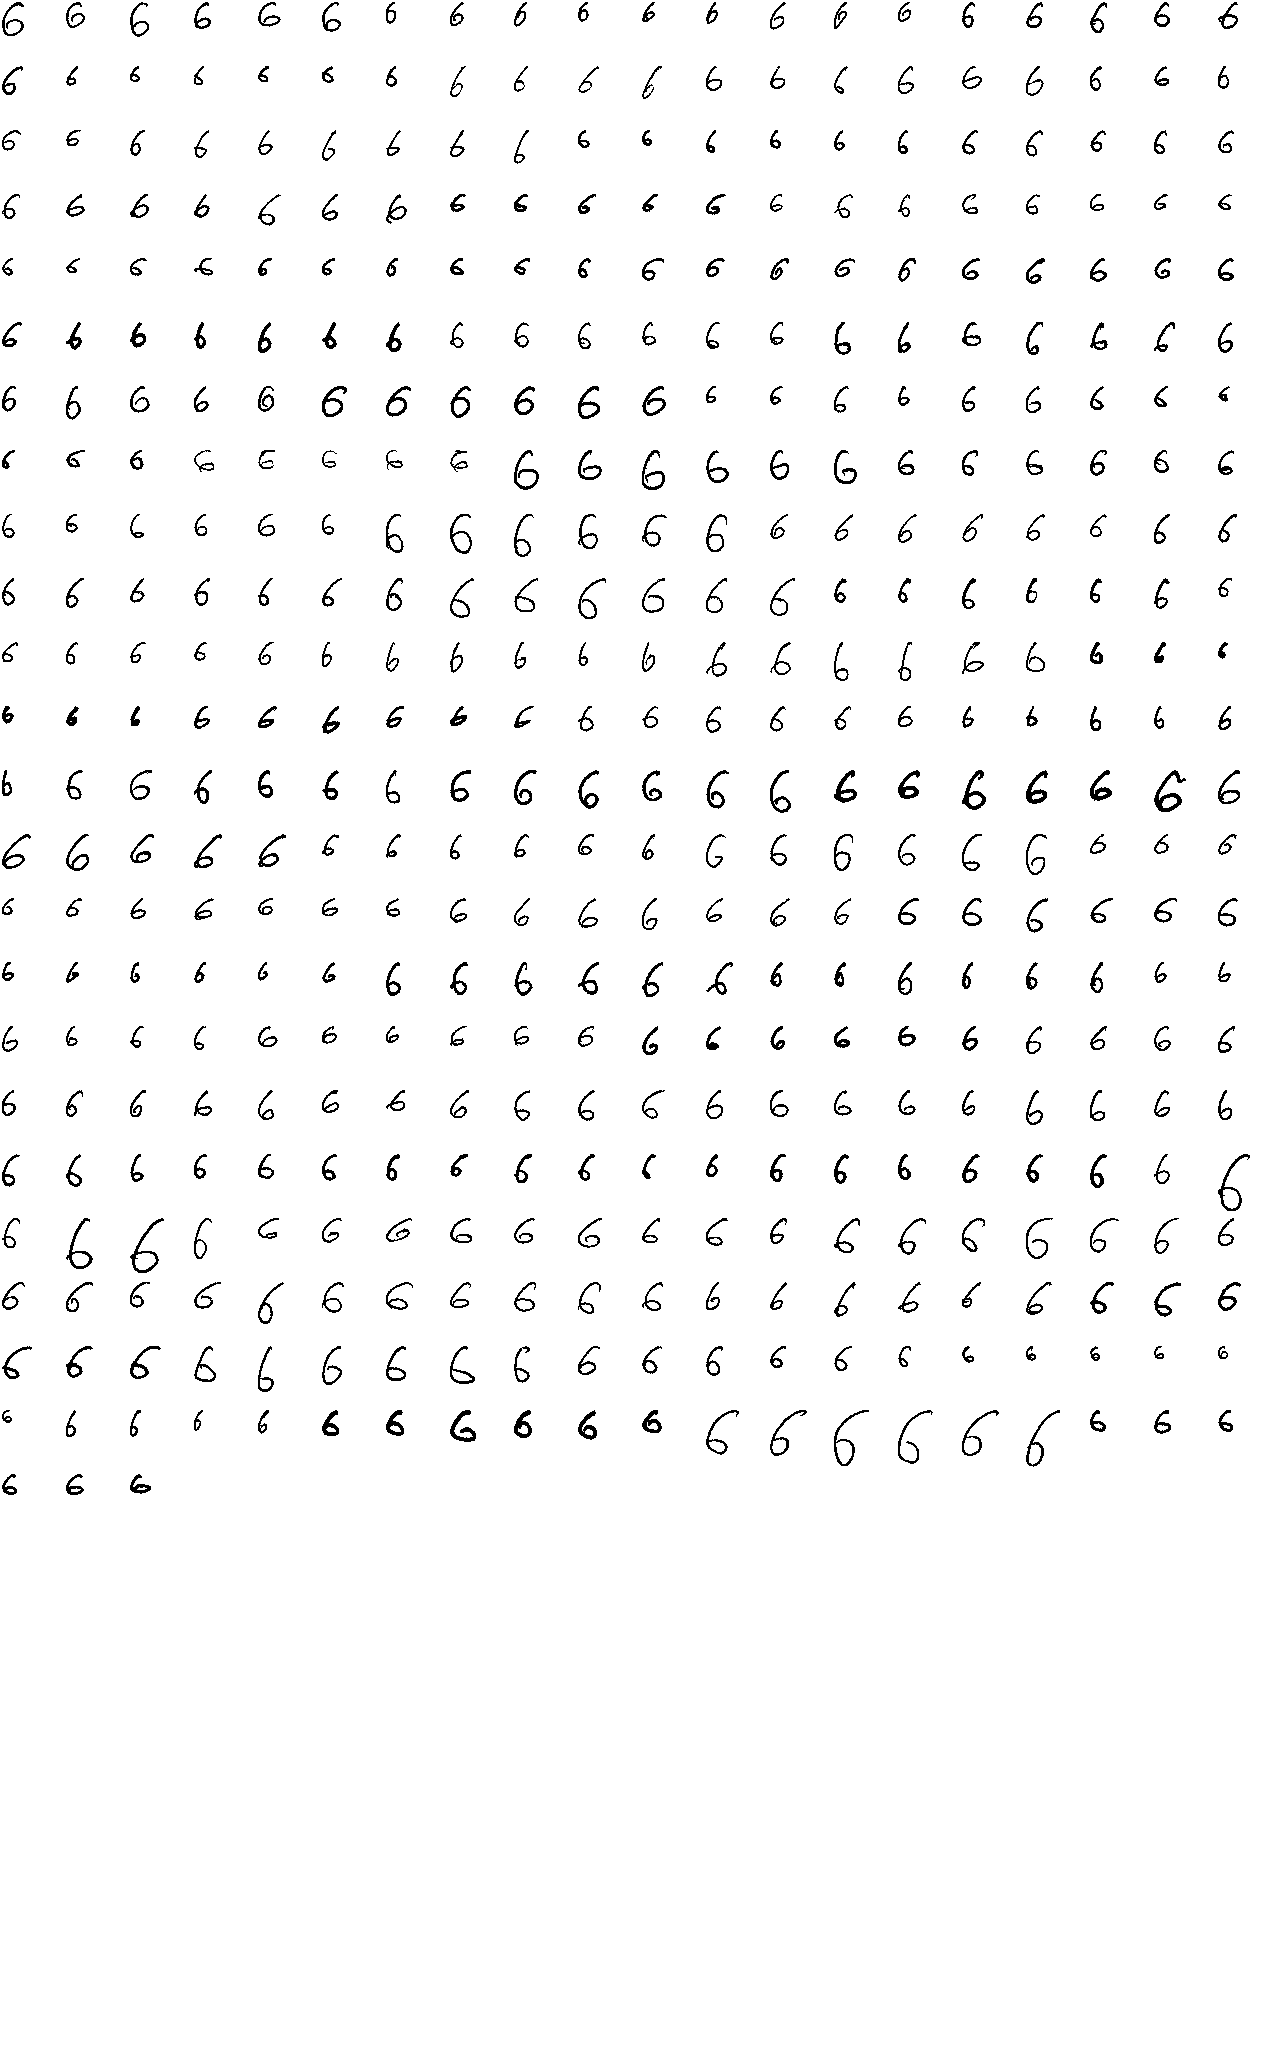 6 6 6 6 6 6 6 6 6 6 6 6 6 6 6 6 6 6 6 6
6 6 6 6 6 6 6 6 6 6 6 6 6 6 6 6 6 6 6 6
6 6 6 6 6 6 6 6 6 6 6 6 6 6 6 6 6 6 6 6
6 6 6 6 6 6 6 6 6 6 6 6 6 6 6 6 6 6 6 6
6 6 6 6 6 6 6 6 6 6 6 6 6 6 6 6 6 6 6 6
6 6 6 6 6 6 6 6 6 6 6 6 6 6 6 6 6 6 6 6
6 6 6 6 6 6 6 6 6 6 6 6 6 6 6 6 6 6 6 6
6 6 6 6 6 6 6 6 6 6 6 6 6 6 6 6 6 6 6 6
6 6 6 6 6 6 6 6 6 6 6 6 6 6 6 6 6 6 6 6
6 6 6 6 6 6 6 6 6 6 6 6 6 6 6 6 6 6 6 6
6 6 6 6 6 6 6 6 6 6 6 6 6 6 6 6 6 6 6 6
6 6 6 6 6 6 6 6 6 6 6 6 6 6 6 6 6 6 6 6
6 6 6 6 6 6 6 6 6 6 6 6 6 6 6 6 6 6 6 6
6 6 6 6 6 6 6 6 6 6 6 6 6 6 6 6 6 6 6 6
6 6 6 6 6 6 6 6 6 6 6 6 6 6 6 6 6 6 6 6
6 6 6 6 6 6 6 6 6 6 6 6 6 6 6 6 6 6 6 6
6 6 6 6 6 6 6 6 6 6 6 6 6 6 6 6 6 6 6 6
6 6 6 6 6 6 6 6 6 6 6 6 6 6 6 6 6 6 6 6
6 6 6 6 6 6 6 6 6 6 6 6 6 6 6 6 6 6 6 6
6 6 6 6 6 6 6 6 6 6 6 6 6 6 6 6 6 6 6 6
6 6 6 6 6 6 6 6 6 6 6 6 6 6 6 6 6 6 6 6
6 6 6 6 6 6 6 6 6 6 6 6 6 6 6 6 6 6 6 6
6 6 6 6 6 6 6 6 6 6 6 6 6 6 6 6 6 6 6 6
6 6 6